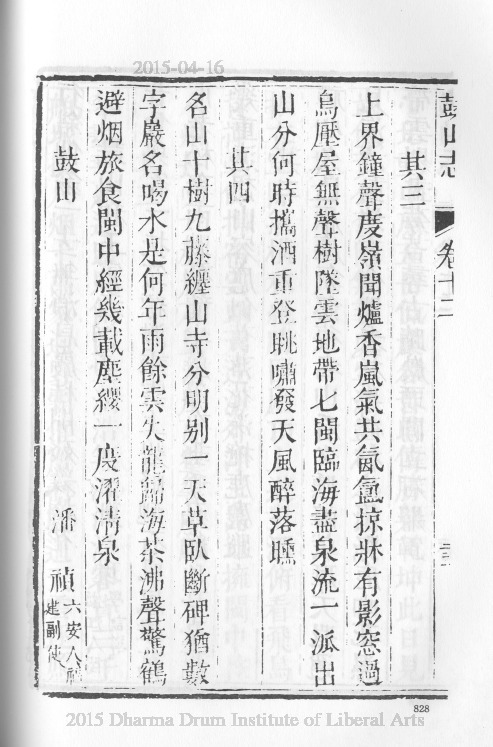 2015-04-16
鼓山志 卷十二
其三
上界鐘聲度嶺聞爐香嵐氣共氤氳掠牀有影窓過
烏壓屋無聲樹墜雲地帶七閩臨海盡泉流一派出
山分何時攜酒重登眺嘯發天風醉落曛
其四
名山十樹九藤纏山寺分明别一天草臥斷碑猶數
字巖名喝水是何年雨餘雲失龍歸海茶沸聲驚鶴
避烟旅食閩中經幾載塵纓一度濯清泉
鼓山 潘 禎 六安人福建副使
828
2015 Dharma Drum Institute of Liberal Arts